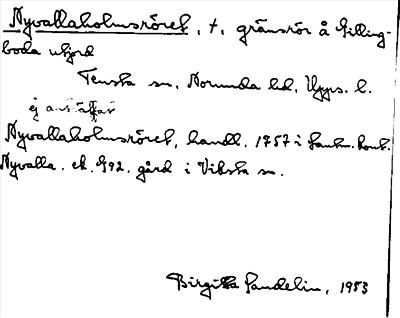 Nyvallaholmsröret, t. gränsrör å Gilling-
boda utjord
Tensta sn, Norunda hd, Upps. l.
ej anträffat
Nyvallaholmsröret, handl. 1757 i Lantm. kont.
Nyvalla. ek. 992. gård i Viksta sn.
Birgitta Sandelin, 1953